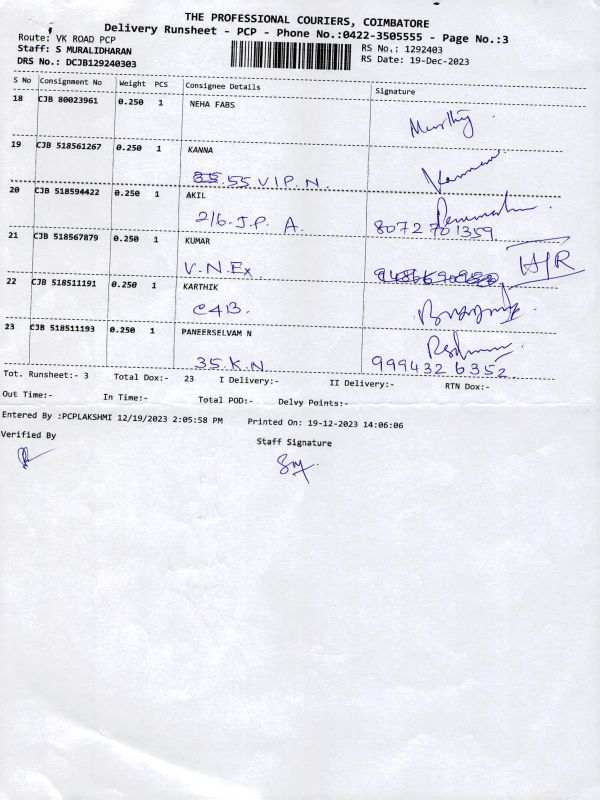 THE PROFESSIONAL COURIERS, COIMBATORE
Delivery Runsheet - PCP - Phone No.:0422-3505555 - Page No.:3
Route: VK ROAD PCP
Staff: S MURALIDHARAN
RS No.: 1292403
DRS No.: DCJB129240303
RS Date: 19-Dec-2023
S No Consignment No Weight PCS Consignee Details Signature
18 CJB 80023961 0.250 1 NEHA FABS
Murthy
19 CJB 518561267 0.250 1 KANNA
55 V I P. N.
Kannan
20 CJB 518594422 0.250 1 AKIL
2/6. J.P. A.
8072701359
21 CJB 518567879 0.250 1 KUMAR
V. N. Ex
22 CJB 518511191 0.250 1 KARTHIK
C4B.
23 CJB 518511193 0.250 1 PANEERSELVAM N
35. K. N.
9994326352
Tot. Runsheet:- 3 Total Dox:- 23 I Delivery:- II Delivery:- RTN Dox:-
Out Time:- In Time:- Total POD:- Delvy Points:-
Entered By :PCPLAKSHMI 12/19/2023 2:05:58 PM Printed On: 19-12-2023 14:06:06
Verified By
Staff Signature